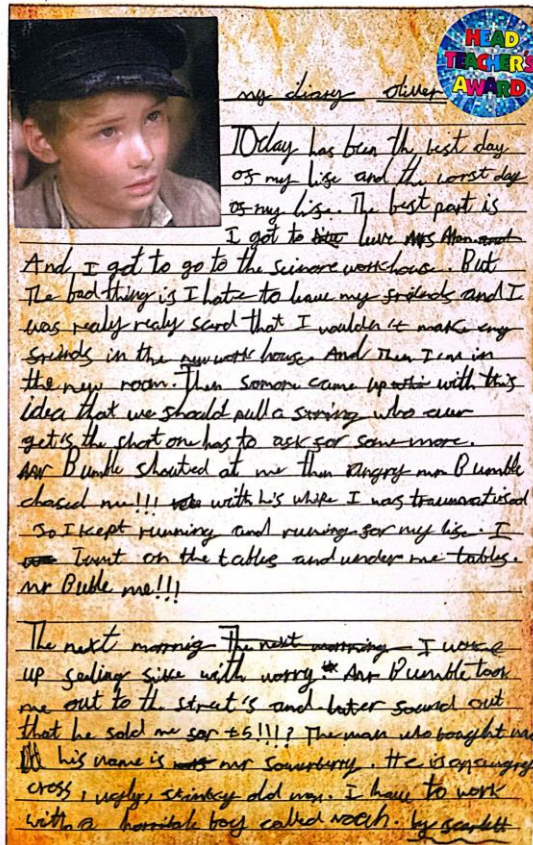 HEAD
TEACHER'S
AWARD
my diary oliver
TOday has been the best day
of my life and the worst day
of my life. The best part is
I got to leave Mrs
And I got to go to the seinore workhouse. But
The bad thing is I hate to leave my friends and I
was realy realy scard that I wouldn't make eny
freinds in the new work house. And Then I am in
the new room. Then somone came up with this
idea that we should pull a string who ever
get's the short one has to ask for some more.
Mr Bumble shouted at me then angry mr Bumble
chased me!!! with his whipe I was traumatised
So I kept running and runing for my life. I
I wint on the tables and under me tables.
mr Buble me!!!
The next mornig The next morning I woke
up feeling sike with worry. Mr Bumble took
me out to the street's and later found out
that he sold me for £5!!!? The man who bought me
his name is mr sowerberry. He is an
cross, ugly, stinky old man. I have to work
with a horrible boy called noah. by scarlett